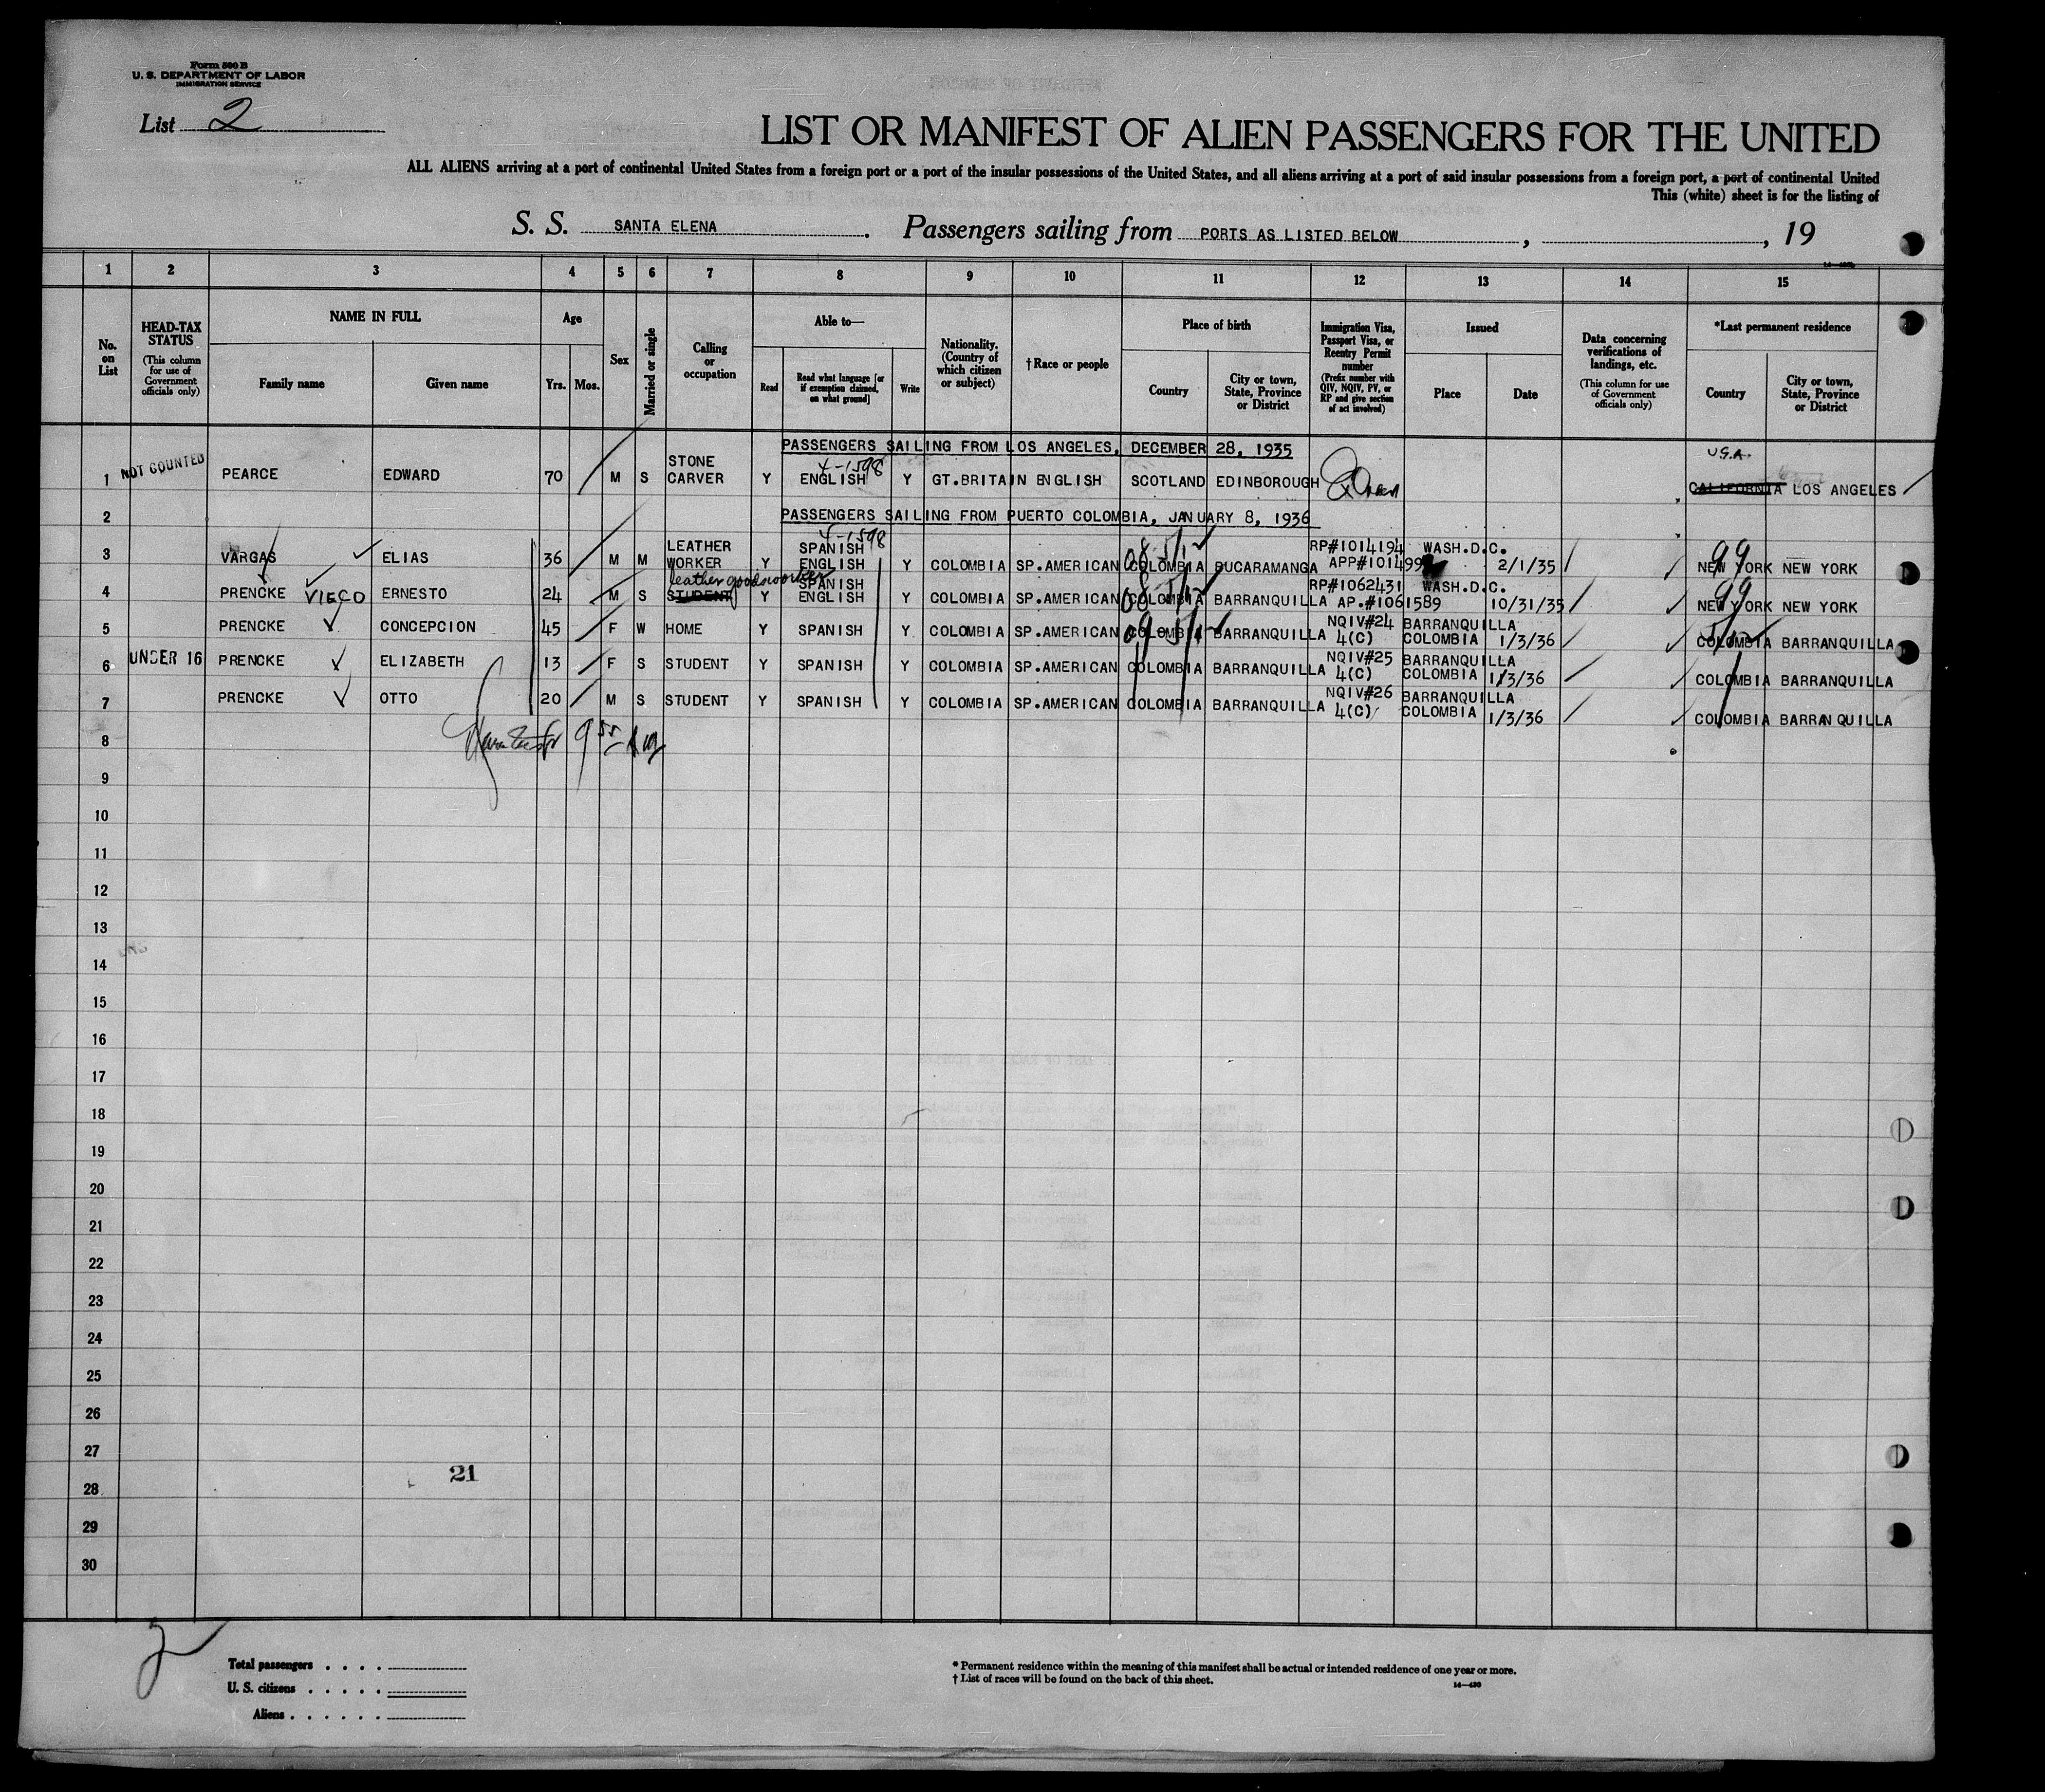 Form 500 B
U. S. DEPARTMENT OF LABOR
IMMIGRATION SERVICE
List 2
LIST OR MANIFEST OF ALIEN PASSENGERS FOR THE UNITED
ALL ALIENS arriving at a port of continental United States from a foreign port or a port of the insular possessions of the United States, and all aliens arriving at a port of said insular possessions from a foreign port, a port of continental United
This (white) sheet is for the listing of
S. S. SANTA ELENA. Passengers sailing from PORTS AS LISTED BELOW, , 19
1 2 3 4 5 6 7 8 9 10 11 12 13 14 15
No. on List
HEAD-TAX STATUS
(This column for use of Government officials only)
NAME IN FULL
Family name
Given name
Age
Yrs. Mos.
Sex
Married or single
Calling or occupation
Able to—
Read
Read what language [or if exemption claimed, on what ground]
Write
Nationality. (Country of which citizen or subject)
†Race or people
Place of birth
Country
City or town, State, Province or District
Immigration Visa, Passport Visa, or Reentry Permit number
(Prefix number with QIV, NQIV, PV, or RP and give section of act involved)
Issued
Place
Date
Data concerning verifications of landings, etc.
(This column for use of Government officials only)
*Last permanent residence
Country
City or town, State, Province or District
PASSENGERS SAILING FROM LOS ANGELES, DECEMBER 28, 1935
4-1598
U.S.A.
1 NOT COUNTED PEARCE EDWARD 70 M S STONE CARVER Y ENGLISH Y GT.BRITAIN ENGLISH SCOTLAND EDINBOROUGH CALIFORNIA LOS ANGELES
2 PASSENGERS SAILING FROM PUERTO COLOMBIA, JANUARY 8, 1936
4-1598
3 VARGAS ELIAS 36 M M LEATHER WORKER Y SPANISH ENGLISH Y COLOMBIA SP.AMERICAN COLOMBIA BUCARAMANGA RP#1014194 APP#101499 WASH.D.C. 2/1/35 99 NEW YORK NEW YORK
leather goods worker
4 PRENCKE VIECO ERNESTO 24 M S STUDENT Y SPANISH ENGLISH Y COLOMBIA SP.AMERICAN COLOMBIA BARRANQUILLA RP#1062431 AP.#1061589 WASH.D.C. 10/31/35 99 NEW YORK NEW YORK
5 PRENCKE CONCEPCION 45 F W HOME Y SPANISH Y COLOMBIA SP.AMERICAN COLOMBIA BARRANQUILLA NQIV#24 4(C) BARRANQUILLA COLOMBIA 1/3/36 COLOMBIA BARRANQUILLA
6 UNDER 16 PRENCKE ELIZABETH 13 F S STUDENT Y SPANISH Y COLOMBIA SP.AMERICAN COLOMBIA BARRANQUILLA NQIV#25 4(C) BARRANQUILLA COLOMBIA 1/3/36 COLOMBIA BARRANQUILLA
7 PRENCKE OTTO 20 M S STUDENT Y SPANISH Y COLOMBIA SP.AMERICAN COLOMBIA BARRANQUILLA NQIV#26 4(C) BARRANQUILLA COLOMBIA 1/3/36 COLOMBIA BARRANQUILLA
8
9
10
11
12
13
14
15
16
17
18
19
20
21
22
23
24
25
26
27
21
28
29
30
2
Total passengers . . . .
U. S. citizens . . . . .
Aliens . . . . . .
* Permanent residence within the meaning of this manifest shall be actual or intended residence of one year or more.
† List of races will be found on the back of this sheet.
14—430